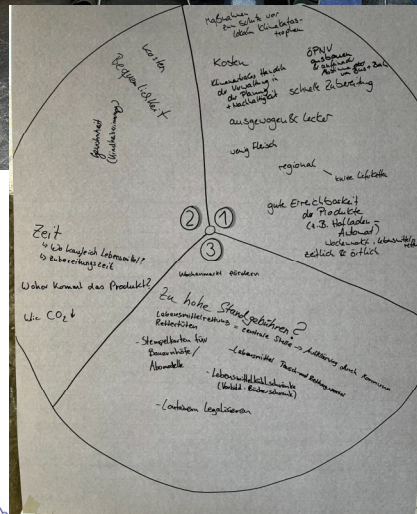 Maßnahmen
zum Schutz vor
lokalen Klimakatas-
trophen
Kosten
ÖPNV
ausbauen
Klimakritisch Handeln
der Verwaltung in
der Planung
+ Nachhaltigkeit
schnelle Zubereitung
ausgewogen & lecker
wenig Fleisch
regional
kurze Lieferketten
gute Erreichbarkeit
der Produkte
(z.B. Hofladen -
Automat)
Wochenmarkt, Lebensmittel
zeitlich & örtlich
1
2
Kosten
Bequemlichkeit
Gewohnheit
Zeit
↳ Wo kaufe ich Lebensmittel?
↳ Zubereitungszeit
Woher kommt das Produkt?
Wie CO₂↓
3
Wochenmarkt fördern
Zu hohe Standgebühren?
Lebensmittelrettung = zentrale Stelle → Aufklärung durch Kommunen
Rettertüten
- Stempelkarten für
Bauernhöfe/
Abomodelle
- Lebensmittel Tausch und Rettung
- Lebensmittelkühlschränke
(Vorbild: Bücherschrank)
- Containern legalisieren